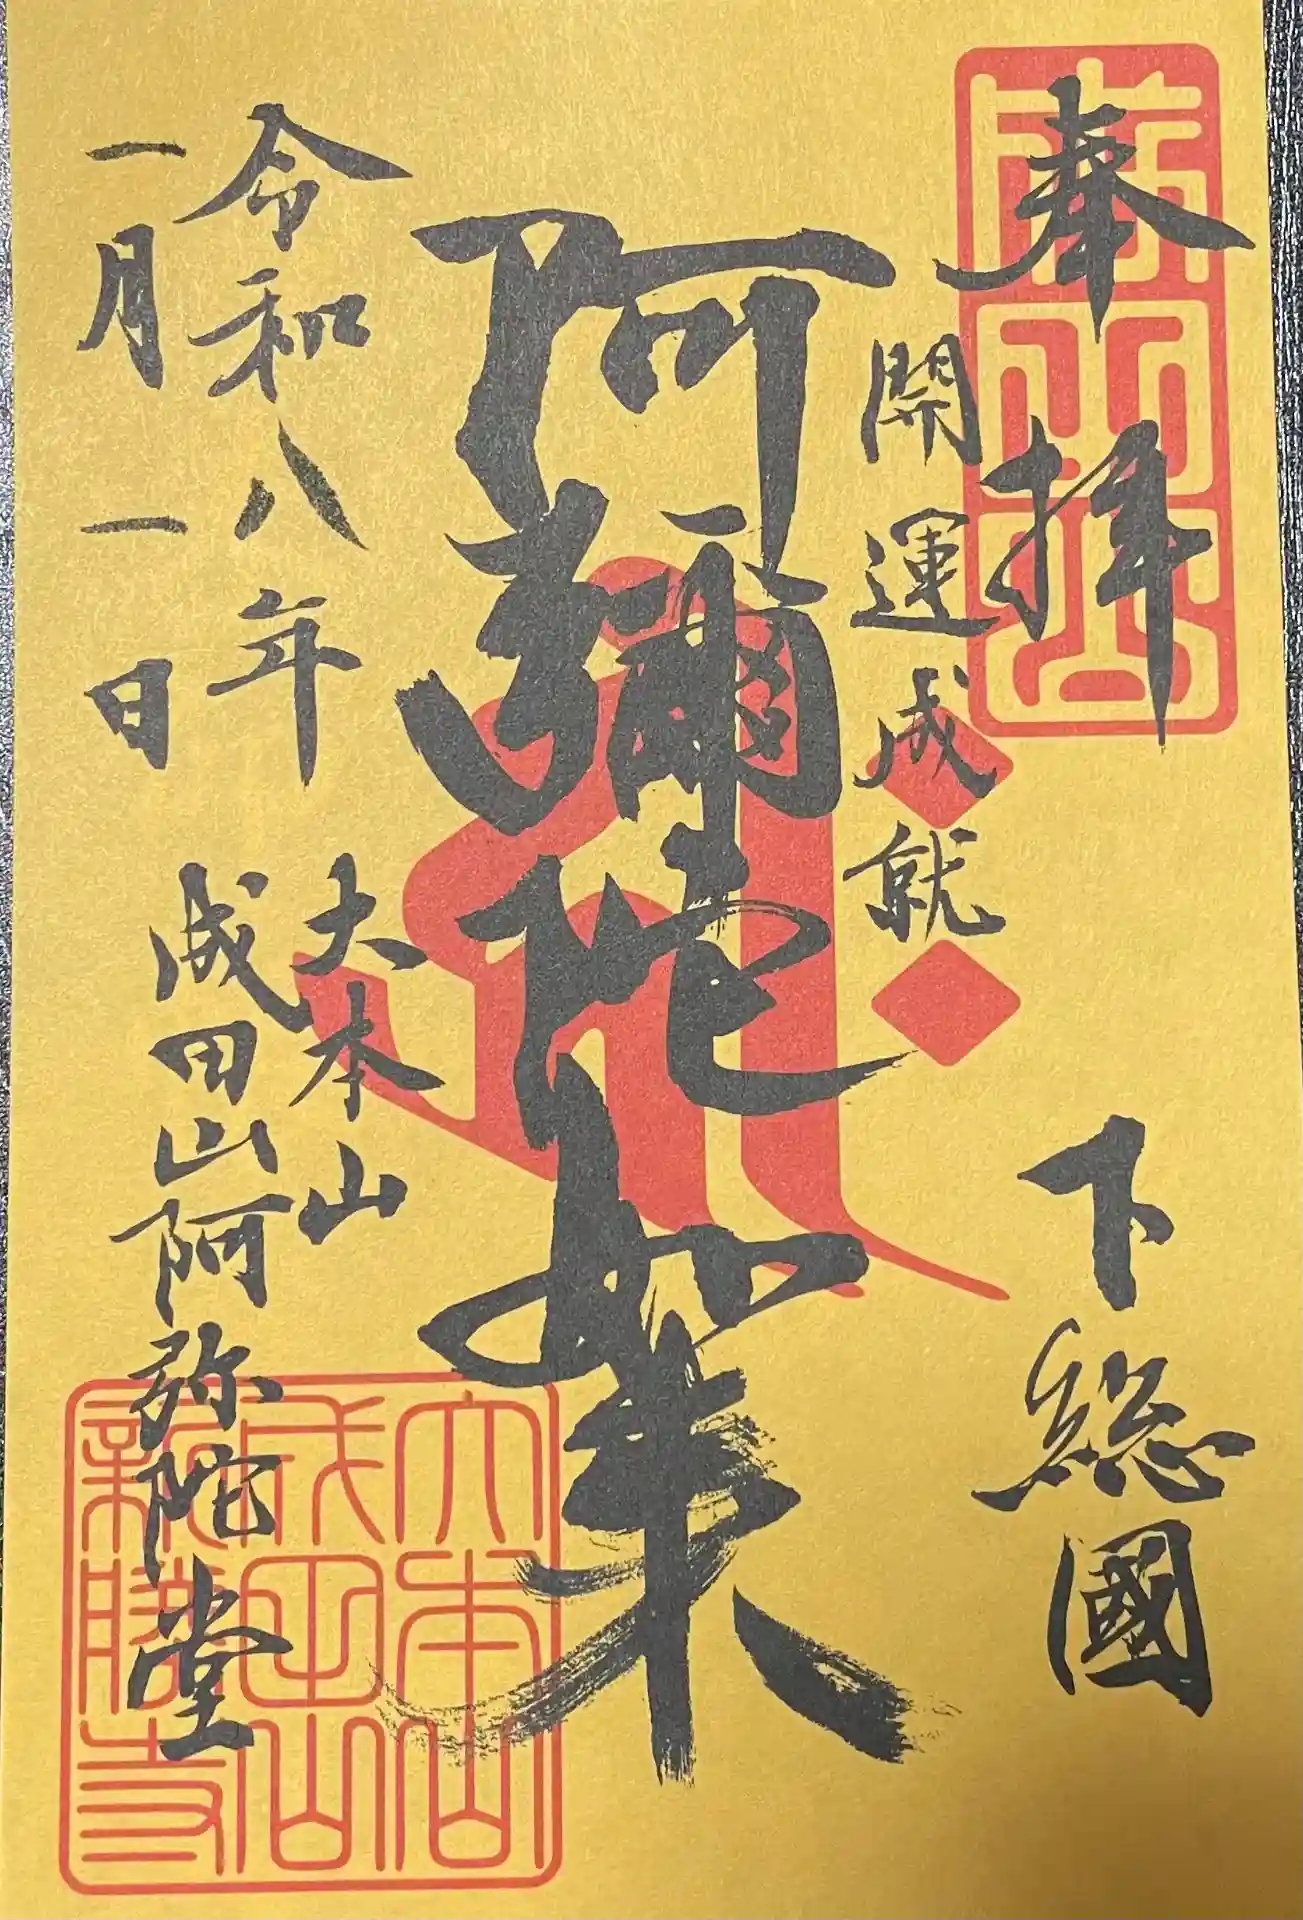 奉拝
下総國
開運成就
阿彌陀如来
令和八年
一月一日
大本山
成田山阿弥陀堂
大本山
成田山
新勝寺